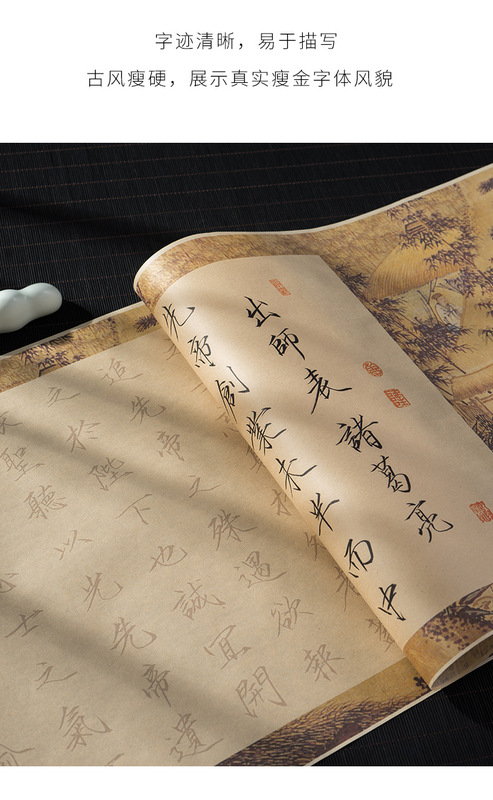 字迹清晰，易于描写
古风瘦硬，展示真实瘦金字体风貌
出師表諸葛亮
先帝創業未半而中
追先帝之殊遇欲報
之於陛下也誠宜開
聖聽以光先帝遺
士之氣